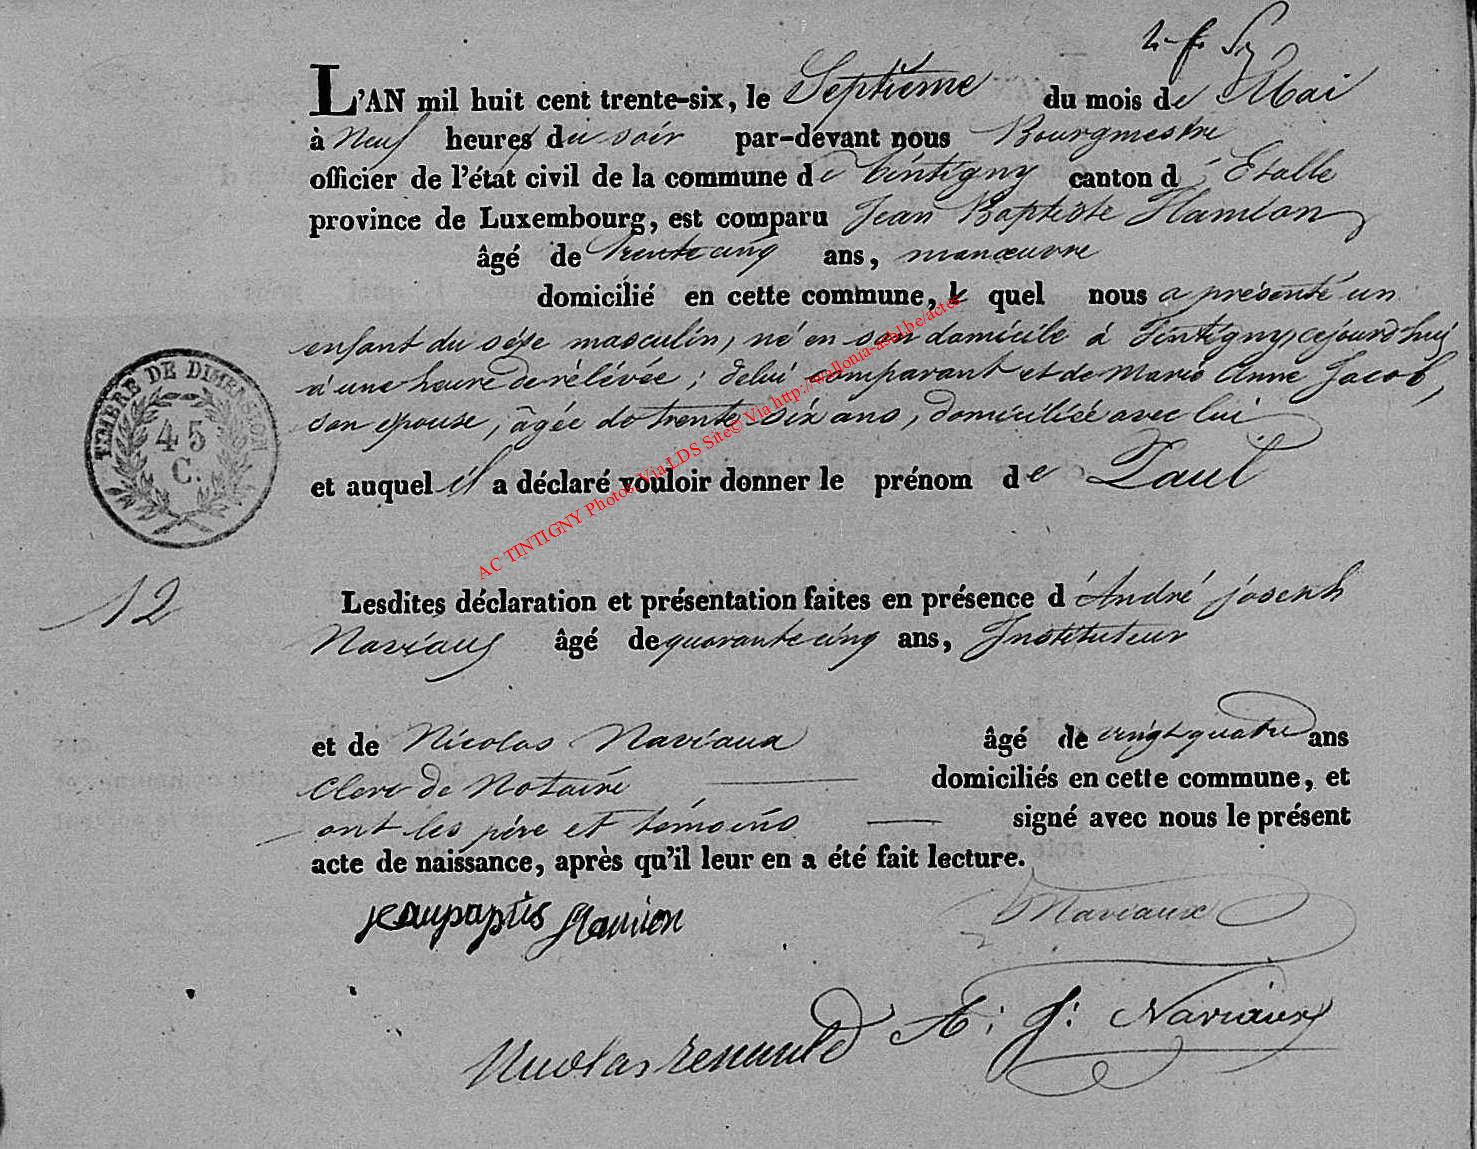 L'AN mil huit cent trente-six, le Septième du mois de Mai
à Neuf heures du soir par-devant nous Bourgmestre
officier de l'état civil de la commune de Tintigny canton d'Etalle
province de Luxembourg, est comparu Jean Baptiste Hamion
âgé de trente cinq ans, manœuvre
domicilié en cette commune, le quel nous a présenté un
enfant du séxe masculin, né en son domicile à Tintigny cejourd'hui
à une heure de rélévée; de lui comparant et de Marie Anne Jacob,
son épouse, âgée de trente six ans, domiciliée avec lui
et auquel il a déclaré vouloir donner le prénom de Paul
TIMBRE DE DIMENSION
45
C.
AC TINTIGNY Photos Via LDS Site© Via http://wallonia-asbl.be/actes
12
Lesdites déclaration et présentation faites en présence d'André joseph
Naviaux âgé de quarante cinq ans, Instituteur
et de Nicolas Naviaux âgé de vingt quatre ans
Clerc de Notaire domiciliés en cette commune, et
ont les père et témoins signé avec nous le présent
acte de naissance, après qu'il leur en a été fait lecture.
jeaupaptis Hamion
Naviaux
Nicolas renauld A: J: Naviaux